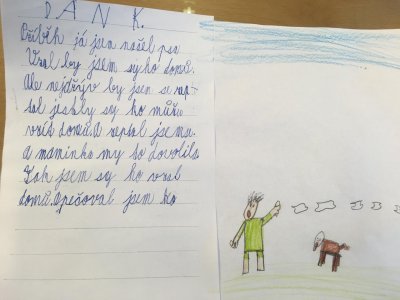 DAN K.
Příběh já jsem našel psa
Vzal by jsem sy ho domů.
Ale nejdřýv by jsem se zep-
tal jestly sy ho můžu
vzít domů. A zeptal jsem a
a maminka my to dovolila
Tak jsem sy ho vzal
domů. Opečoval jsem ho